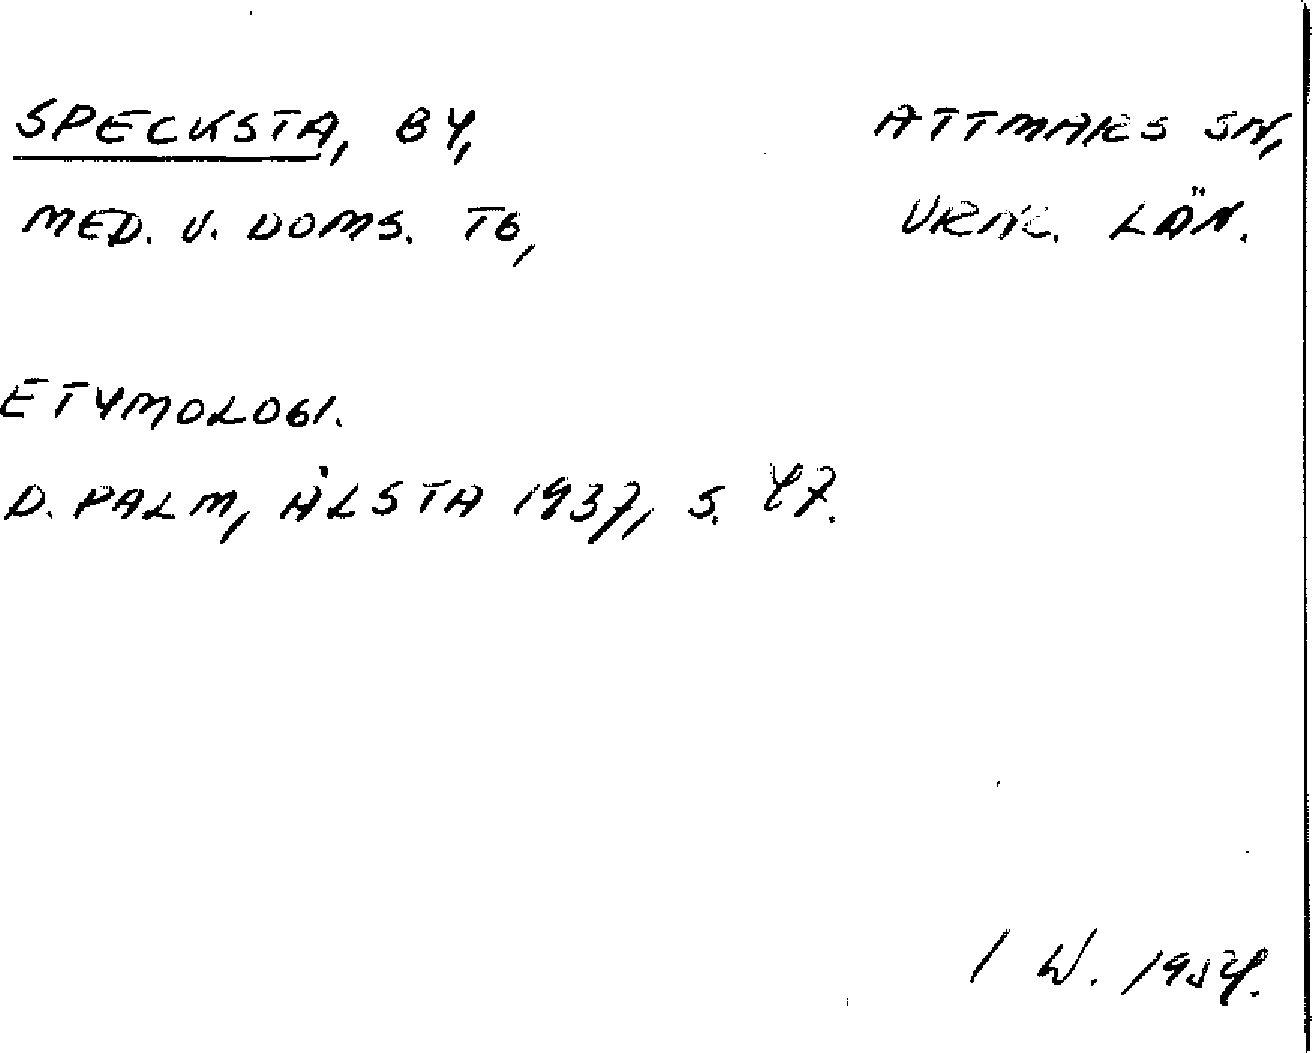 SPECKSTA, BY, ATTMARS SN,
MED. V. DOMS. TG, VRNL. LÄN.
ETYMOLOGI.
D. PALM, ÅLSTA 1937, S. 47.
I W. 1954.